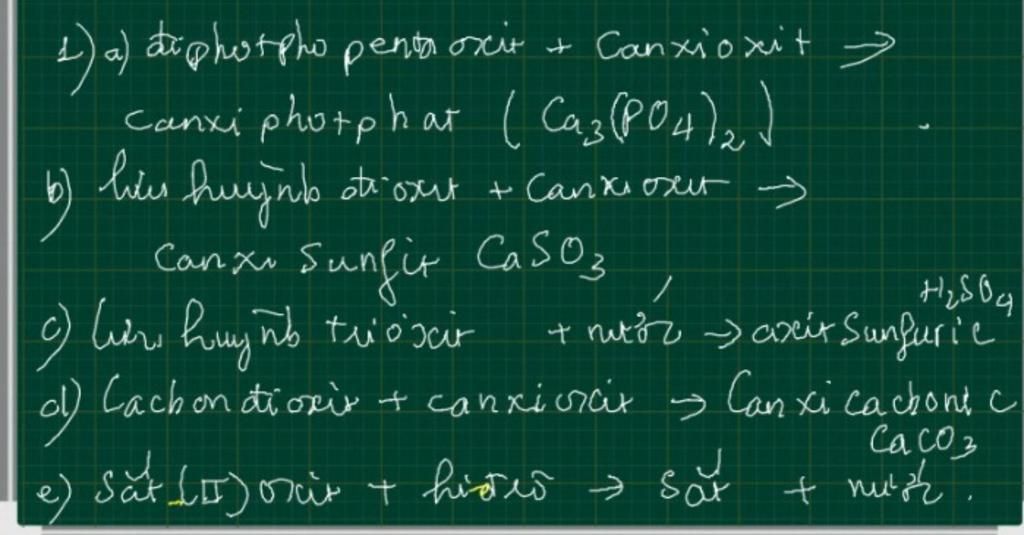 1) a) điphotpho pentaoxit + Canxioxit →
canxi photphat ( Ca3(PO4)2 )
b) lưu huỳnh đioxit + Canxi oxit →
Canxi Sunfit CaSO3
c) lưu huỳnh trioxit + nước → axit Sunfuric H2SO4
d) Cacbon đioxit + canxi oxit → Canxi cacbonic
CaCO3
e) Sắt (II) oxit + hiđrô → sắt + nước.